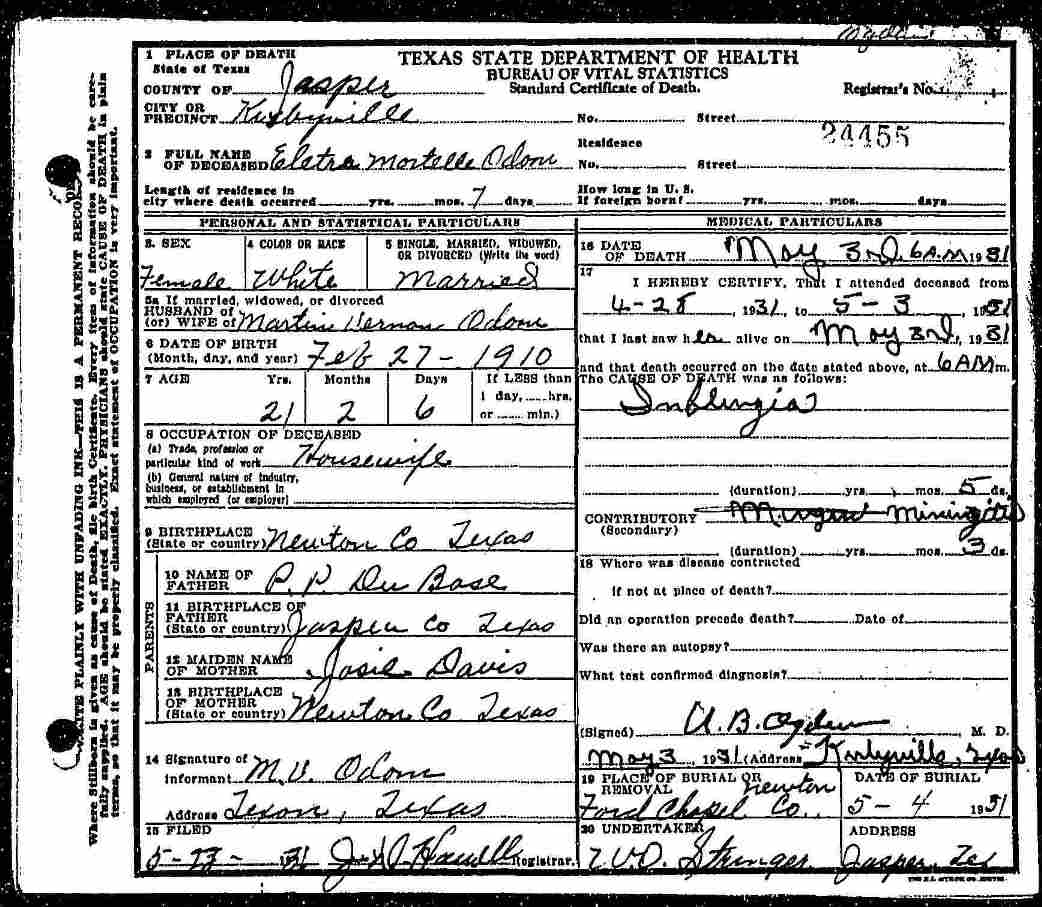 TEXAS STATE DEPARTMENT OF HEALTH
BUREAU OF VITAL STATISTICS
Standard Certificate of Death.
Registrar's No.
24455
WRITE PLAINLY WITH UNFADING INK—THIS IS A PERMANENT RECORD
Where Stillborn is given as cause of Death, file birth Certificate. Every item of information should be care-
fully supplied. AGE should be stated EXACTLY. PHYSICIANS should state CAUSE OF DEATH in plain
terms, so that it may be properly classified. Exact statement of OCCUPATION is very important.
1 PLACE OF DEATH
State of Texas
COUNTY OF Jasper
CITY OR
PRECINCT Kirbyville
No. Street
2 FULL NAME
OF DECEASED Eletra Mortelle Odom
Residence
No. Street
Length of residence in
city where death occurred yrs. mos. 7 days
How long in U. S.
If foreign born? yrs. mos. days
PERSONAL AND STATISTICAL PARTICULARS
3. SEX
Female
4 COLOR OR RACE
White
5 SINGLE, MARRIED, WIDOWED,
OR DIVORCED (Write the word)
Married
5a If married, widowed, or divorced
HUSBAND OF
(or) WIFE of Martin Vernon Odom
6 DATE OF BIRTH
(Month, day, and year) Feb 27 - 1910
7 AGE Yrs. Months Days If LESS than
1 day, hrs.
or min.)
21 2 6
8 OCCUPATION OF DECEASED
(a) Trade, profession or
particular kind of work Housewife
(b) General nature of industry,
business, or establishment in
which employed (or employer)
9 BIRTHPLACE
(State or country) Newton Co Texas
PARENTS
10 NAME OF
FATHER P. P. Du Base
11 BIRTHPLACE OF
FATHER
(State or country) Jasper Co Texas
12 MAIDEN NAME
OF MOTHER Josie Davis
13 BIRTHPLACE
OF MOTHER
(State or country) Newton Co Texas
14 Signature of
informant M. V. Odom
Address Texon, Texas
15 FILED
31 Registrar.
MEDICAL PARTICULARS
16 DATE
OF DEATH May 3rd 6 A.M 1931
17
I HEREBY CERTIFY, That I attended deceased from
4-28, 1931, to 5-3, 1931
that I last saw her alive on May 3rd, 1931
and that death occurred on the date stated above, at 6 AM m.
The CAUSE OF DEATH was as follows:
(duration) yrs. mos. 5 ds.
CONTRIBUTORY
(Secondary)
(duration) yrs. mos. 3 ds.
18 Where was disease contracted
if not at place of death?
Did an operation precede death? Date of
Was there an autopsy?
What test confirmed diagnosis?
(Signed) U. B. Ogden M. D.
May 3 1931 (Address Kirbyville, Texas
19 PLACE OF BURIAL OR
REMOVAL Newton
Ford Chapel Co.
DATE OF BURIAL
5 - 4 1931
20 UNDERTAKER
Stringer
ADDRESS
Jasper, Tex